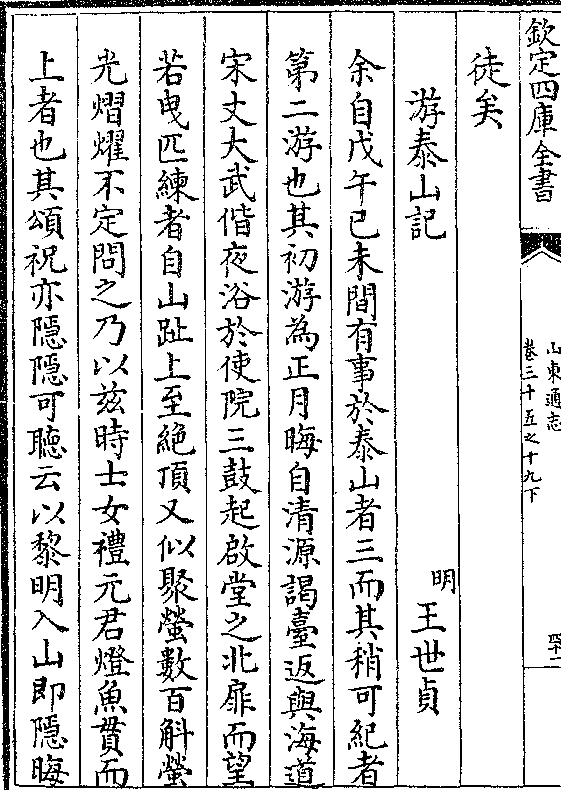 欽定四庫全書
山東通志
卷三十五之十九下
四十二
徒矣
游泰山記
明
王世貞
余自戊午己未間有事於泰山者三而其稍可紀者
第二游也其初游為正月晦自清源謁臺返與海道
宋丈大武偕夜浴於使院三鼓起啟堂之北扉而望
若曳匹練者自山趾上至絶頂又似聚螢數百斛螢
光熠燿不定問之乃以兹時士女禮元君燈魚貫而
上者也其頌祝亦隱隱可聽云以黎明入山即隱晦